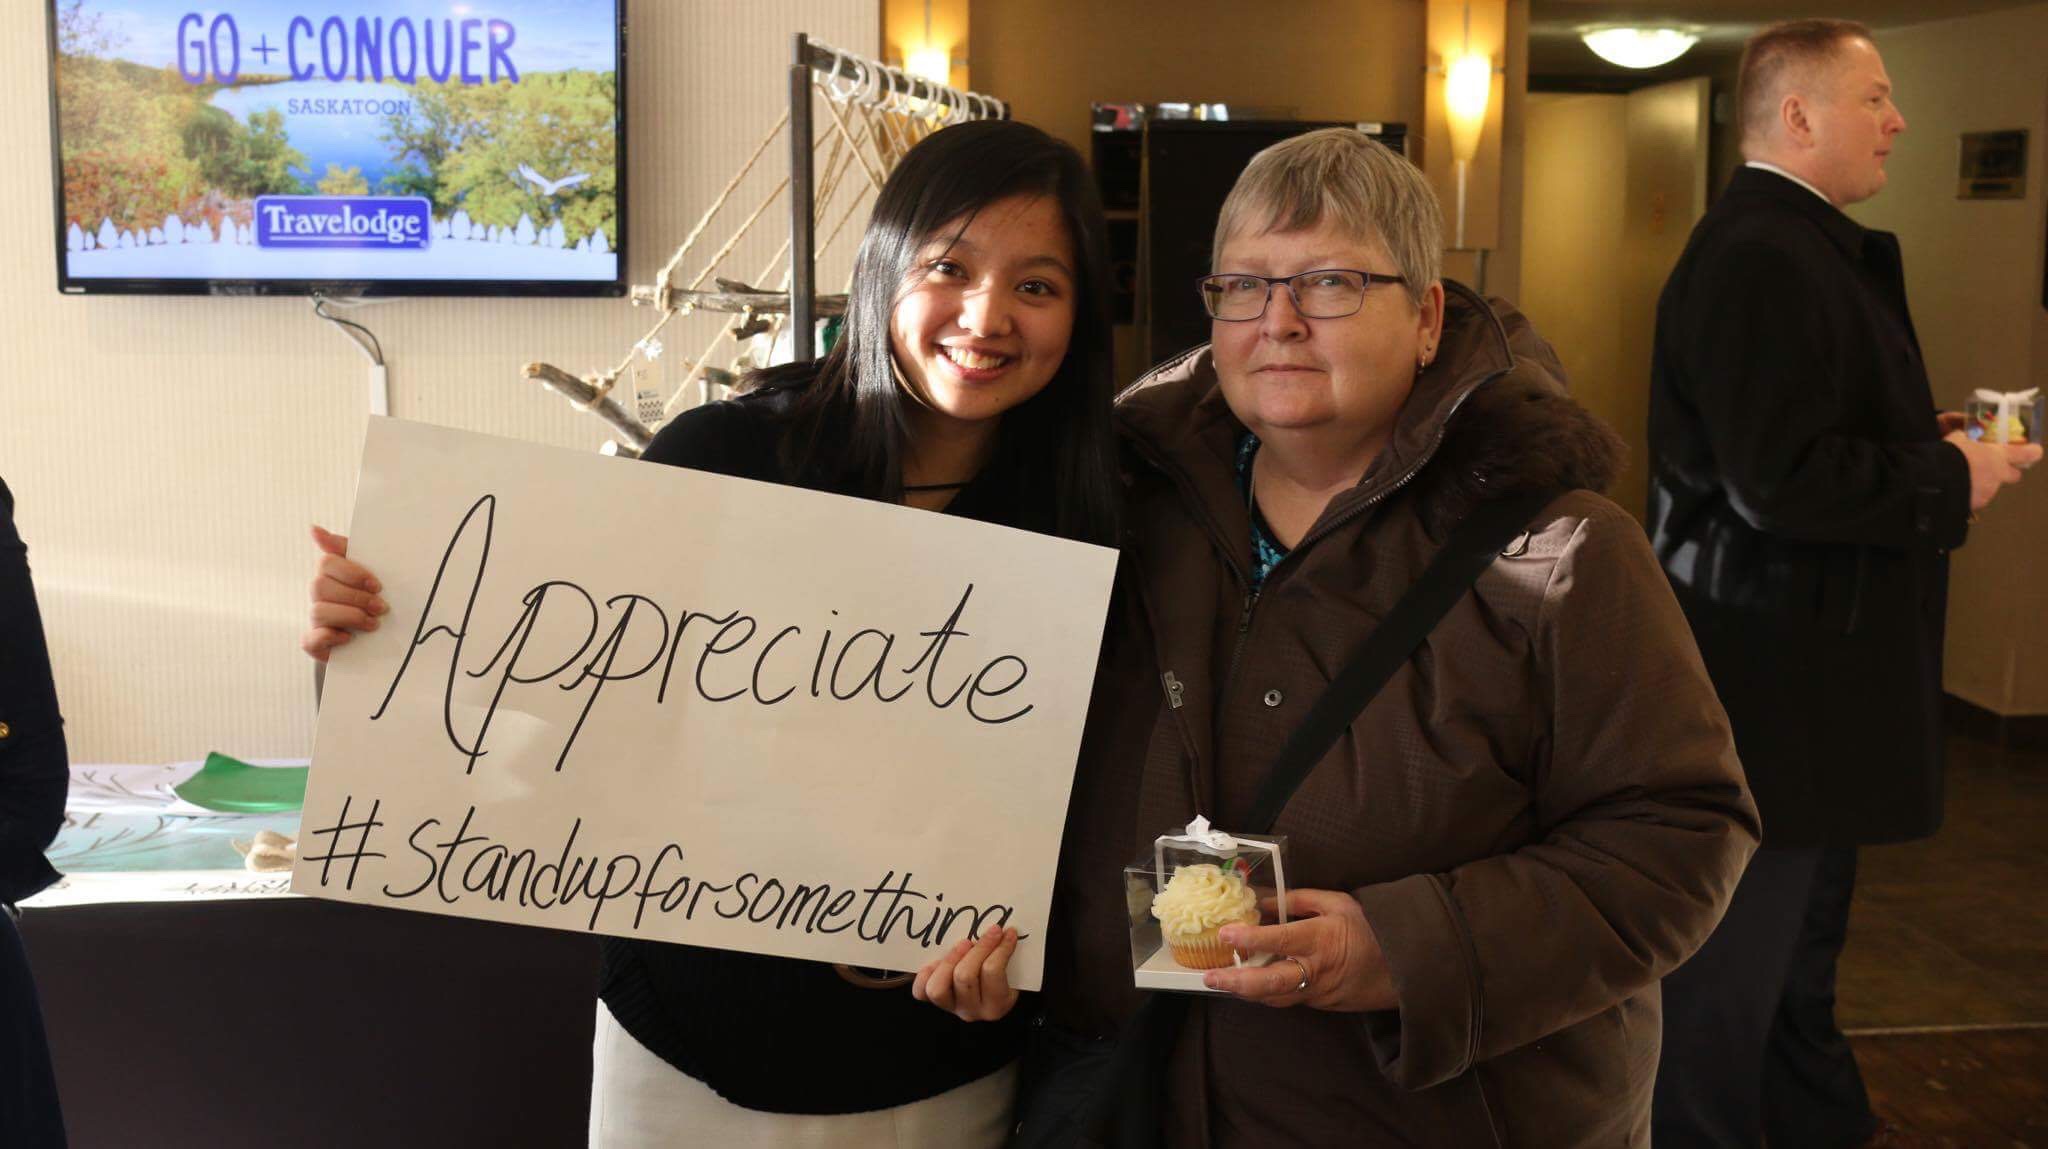 GO + CONQUER
SASKATOON
Travelodge
Appreciate
#standupforsomething